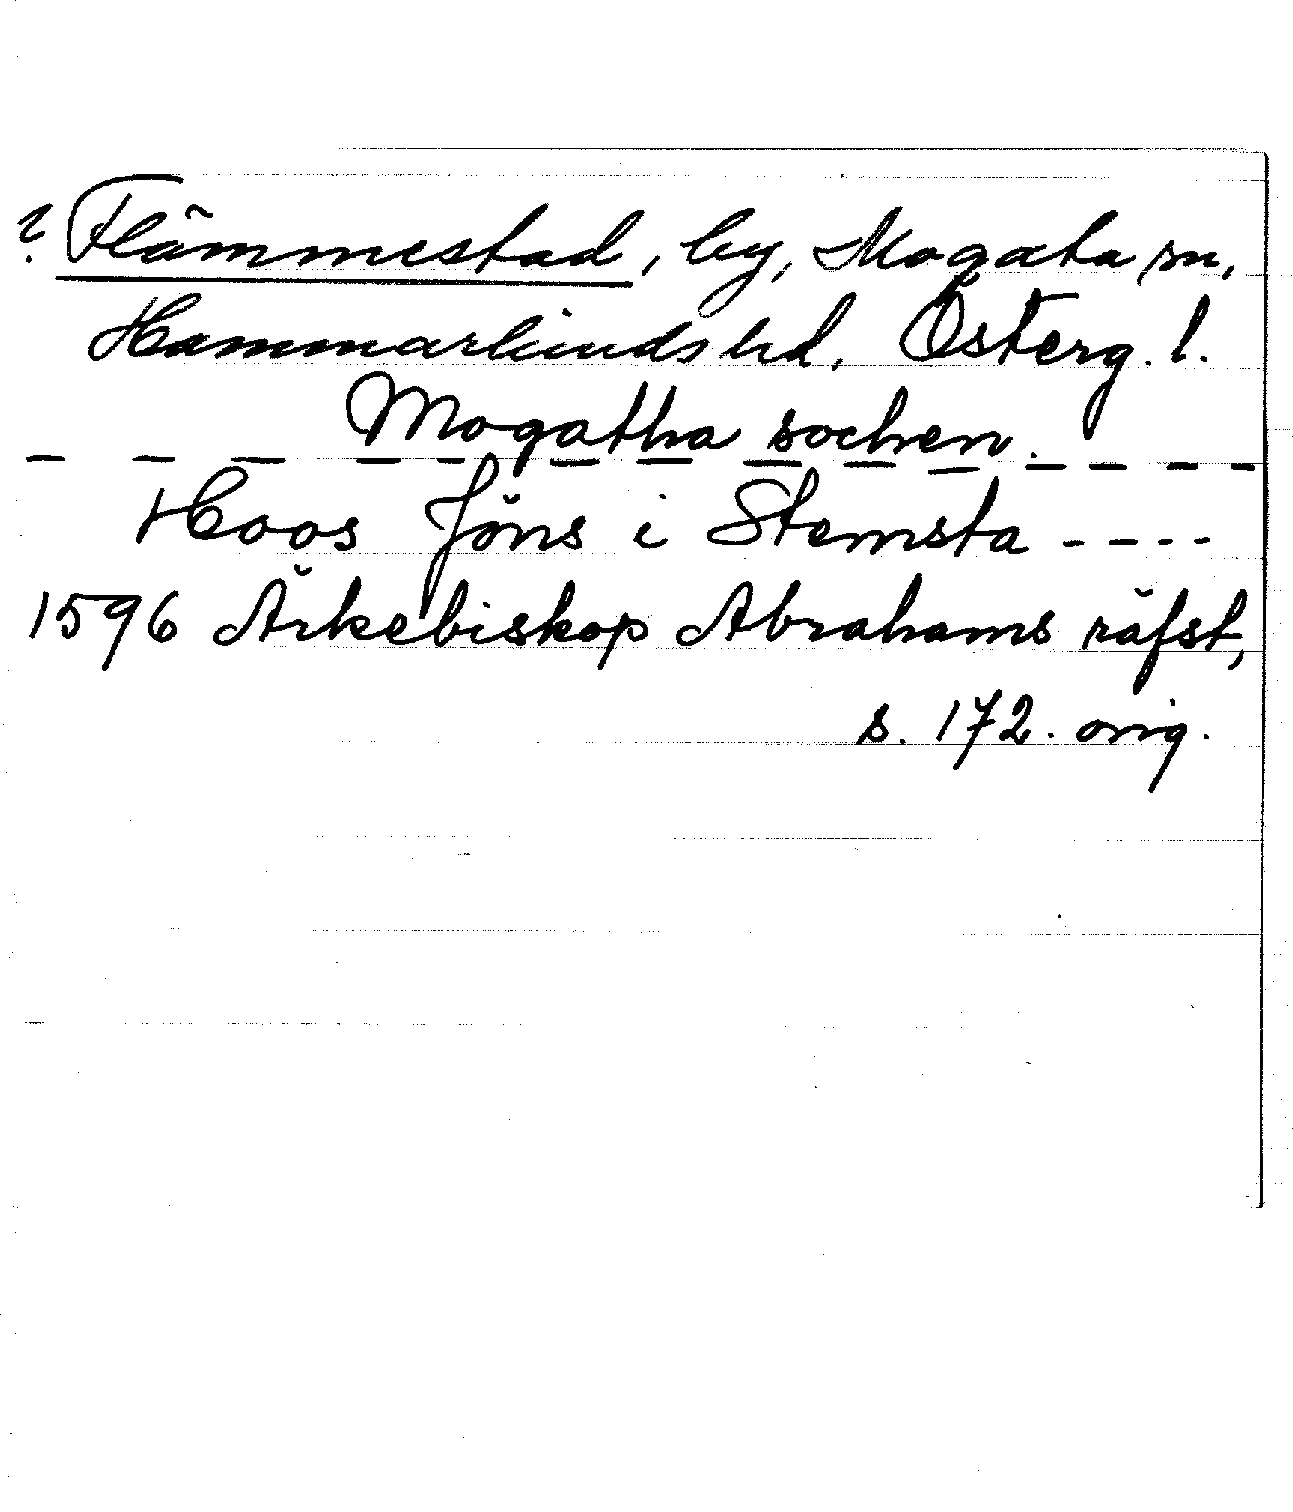 ? Flämmestad, by, Mogata sn,
Hammarkinds hd. Österg. l.
Mogatha sochen.
— — — — — — — — — — — — — —
Hoos Jöns i Stemsta ----
1596 Ärkebiskop Abrahams räfst,
s. 172. orig.